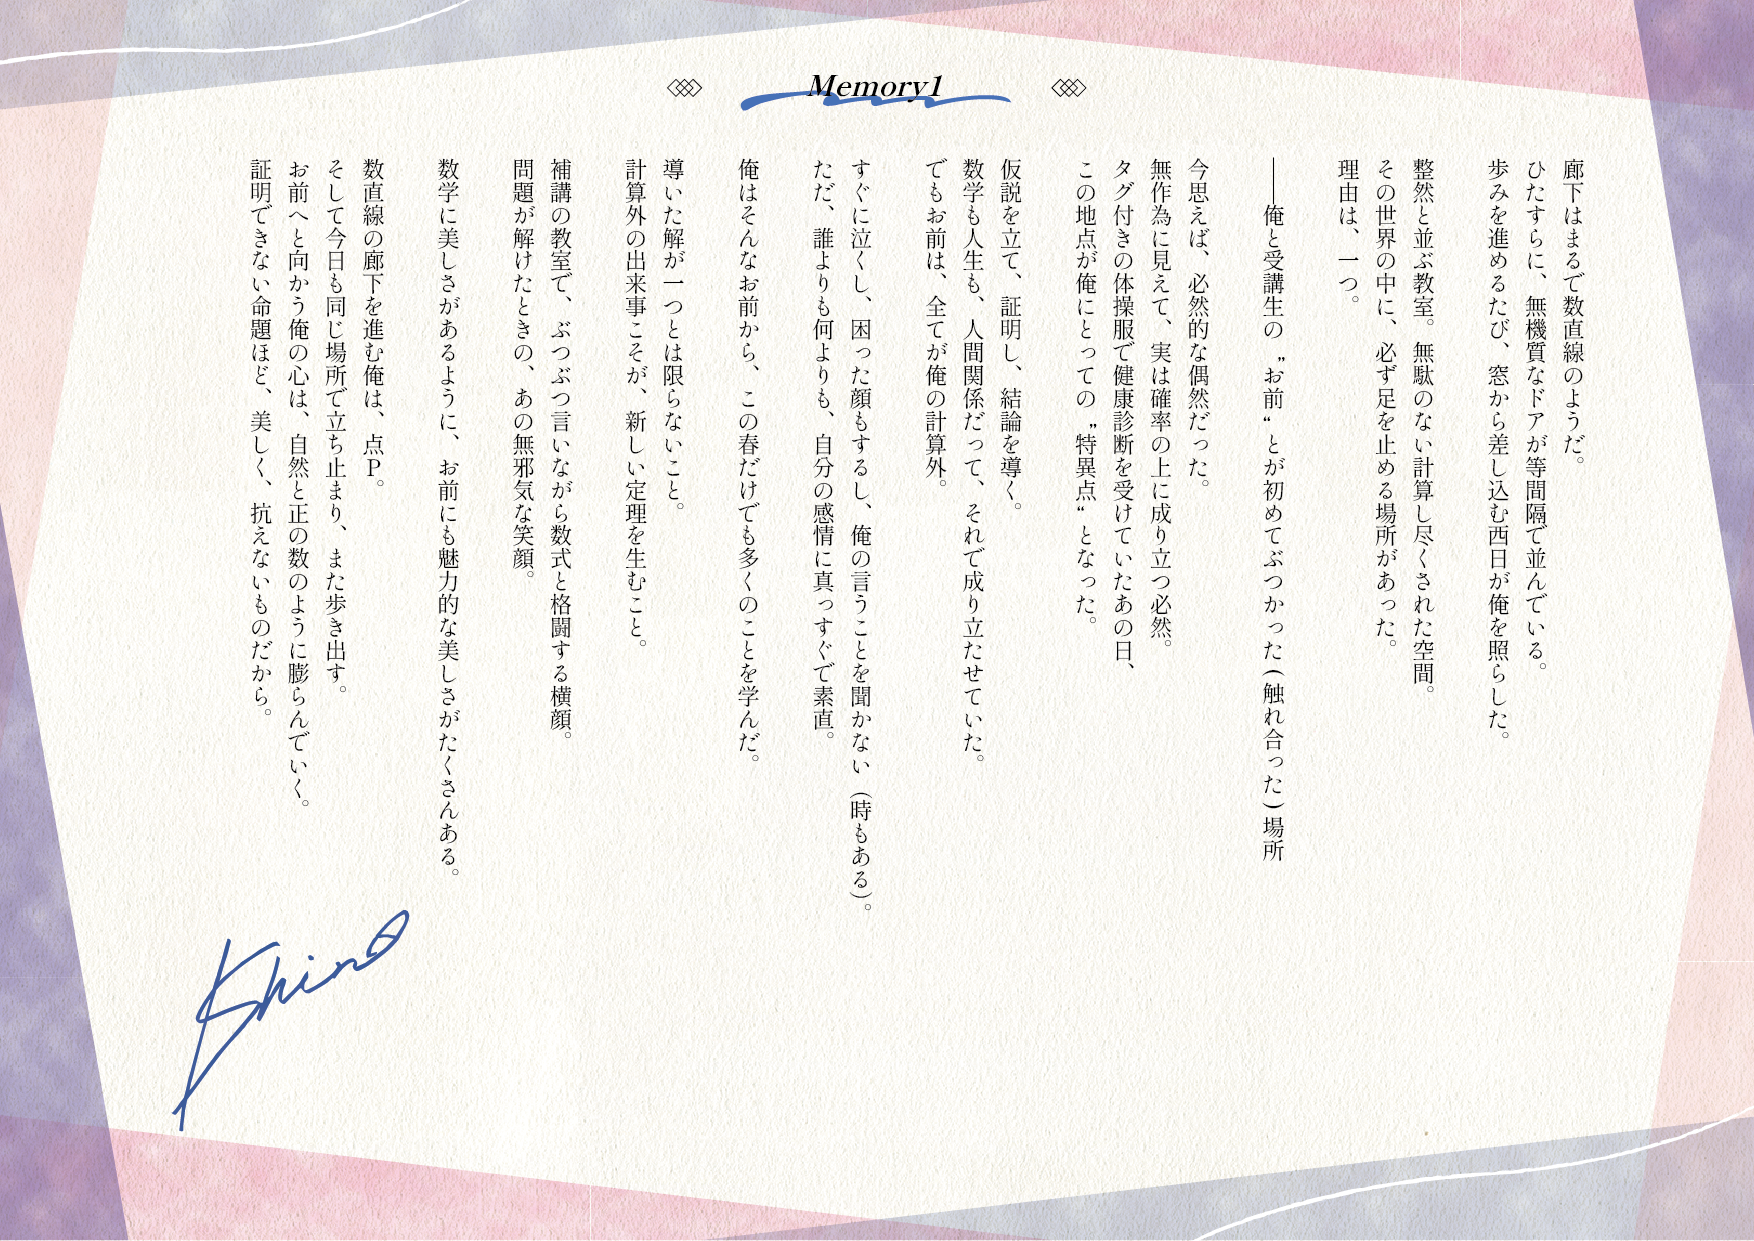 Memory1
廊下はまるで数直線のようだ。
ひたすらに、無機質なドアが等間隔で並んでいる。
歩みを進めるたび、窓から差し込む西日が俺を照らした。
整然と並ぶ教室。無駄のない計算し尽くされた空間。
その世界の中に、必ず足を止める場所があった。
理由は、一つ。
――俺と受講生の〝お前〟とが初めてぶつかった(触れ合った)場所
今思えば、必然的な偶然だった。
無作為に見えて、実は確率の上に成り立つ必然。
タグ付きの体操服で健康診断を受けていたあの日、
この地点が俺にとっての〝特異点〟となった。
仮説を立て、証明し、結論を導く。
数学も人生も、人間関係だって、それで成り立たせていた。
でもお前は、全てが俺の計算外。
すぐに泣くし、困った顔もするし、俺の言うことを聞かない(時もある)。
ただ、誰よりも何よりも、自分の感情に真っすぐで素直。
俺はそんなお前から、この春だけでも多くのことを学んだ。
導いた解が一つとは限らないこと。
計算外の出来事こそが、新しい定理を生むこと。
補講の教室で、ぶつぶつ言いながら数式と格闘する横顔。
問題が解けたときの、あの無邪気な笑顔。
数学に美しさがあるように、お前にも魅力的な美しさがたくさんある。
数直線の廊下を進む俺は、点P。
そして今日も同じ場所で立ち止まり、また歩き出す。
お前へと向かう俺の心は、自然と正の数のように膨らんでいく。
証明できない命題ほど、美しく、抗えないものだから。